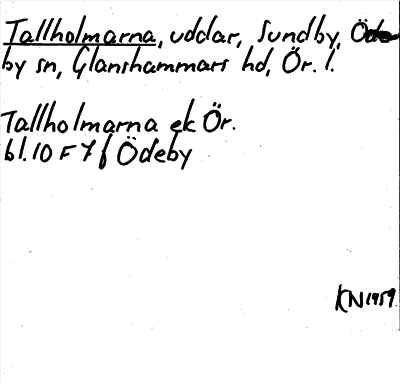 Tallholmarna, uddar, Sundby, Öde
by sn, Glanshammars hd, Ör. l.
Tallholmarna ek Ör.
bl. 10 F 7 f Ödeby
KN 1959